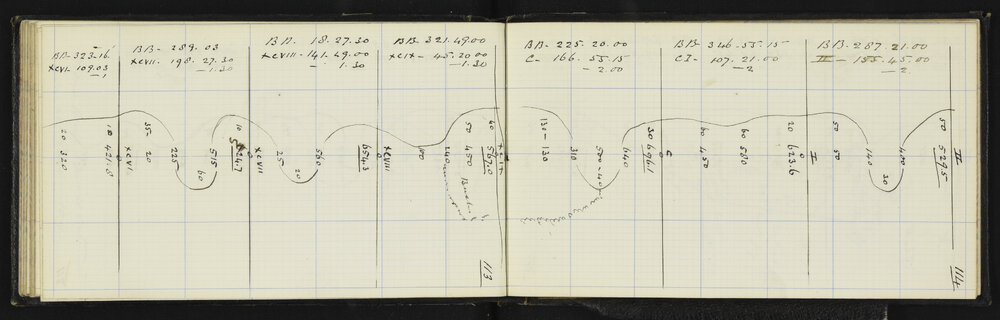 BB- 323.16
XCVI- 109.03
-1
BB- 289.03
XCVII- 198.27.30
-1.30
BB. 18.27.30
XCVIII- 141.49.00
- 1.30
BB- 321.49.00
XCIX- 45.20.00
-1.30
20
320
10
421.8
XCVI
35-
20
225
60
515
10
XCVII
25
20
560
654.3
XCVIII
100
240
50
450
Bush
40
562.0
XCIX
113
BB- 225.20.00
C- 166.55.15
-2.00
BB- 346.55.15
CI- 107.21.00
-2
BB- 287.21.00
II- 155.45.00
-2.
130-
130
310
500-40
640
30
696.1
C
60
450
60
580
20
623.6
I
50
50
140
30
400
50
529.5
II
114